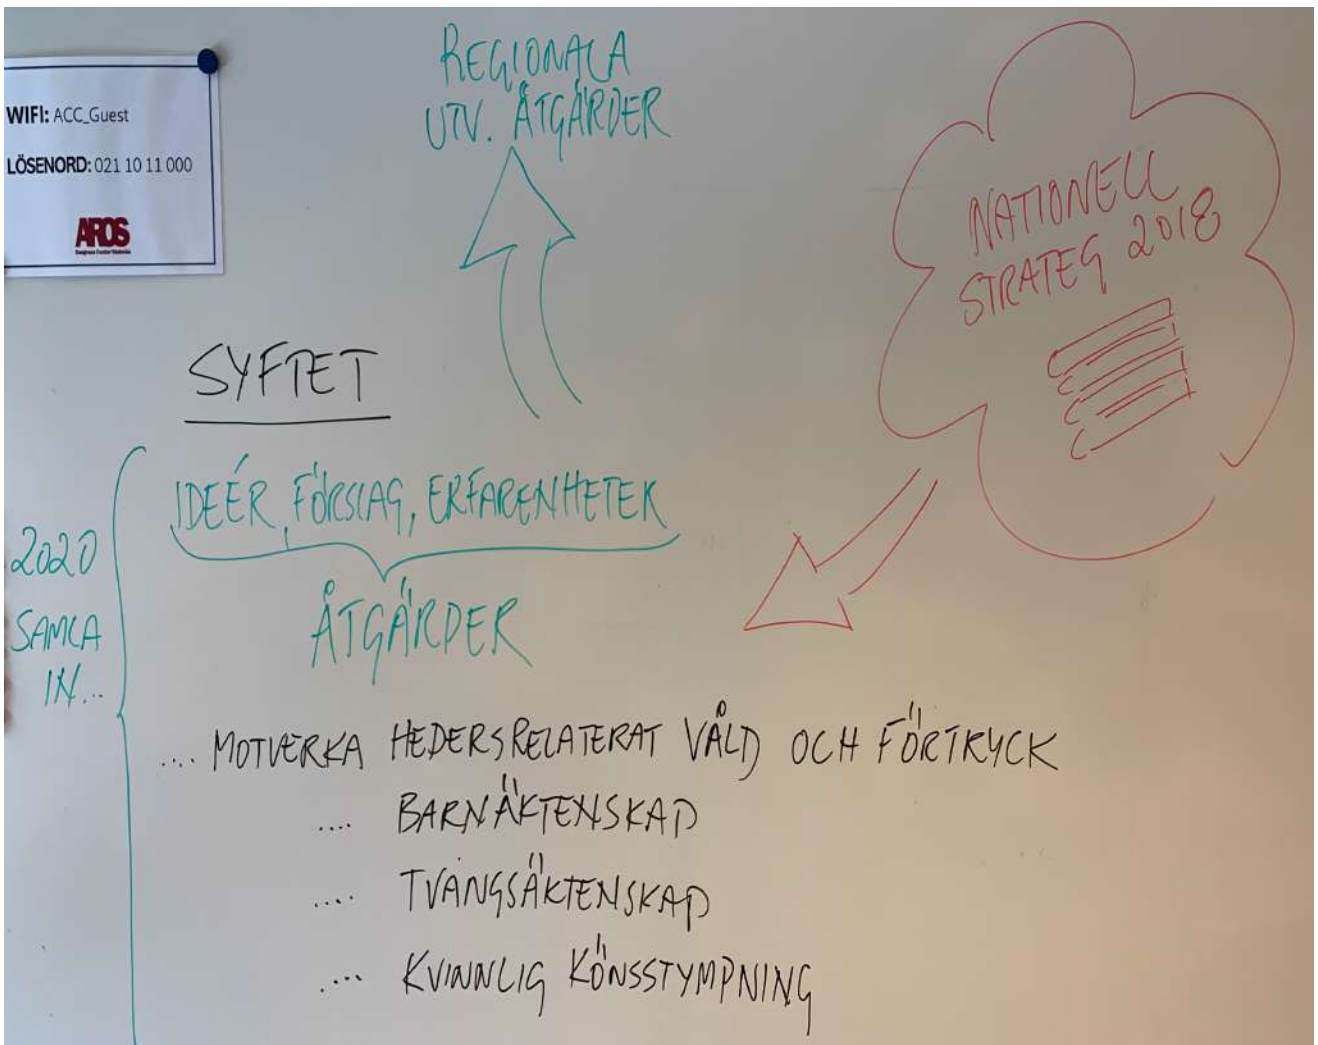 WIFI: ACC_Guest
LÖSENORD: 021 10 11 000
AROS
Congress Center Västerås
REGIONALA
UTV. ÅTGÄRDER
NATIONELL
STRATEG 2018
SYFTET
IDEÉR, FÖRSLAG, ERFARENHETER
ÅTGÄRDER
2020
SAMLA
IN...
.... MOTVERKA HEDERSRELATERAT VÅLD OCH FÖRTRYCK
.... BARNÄKTENSKAP
.... TVÅNGSÄKTENSKAP
.... KVINNLIG KÖNSSTYMPNING